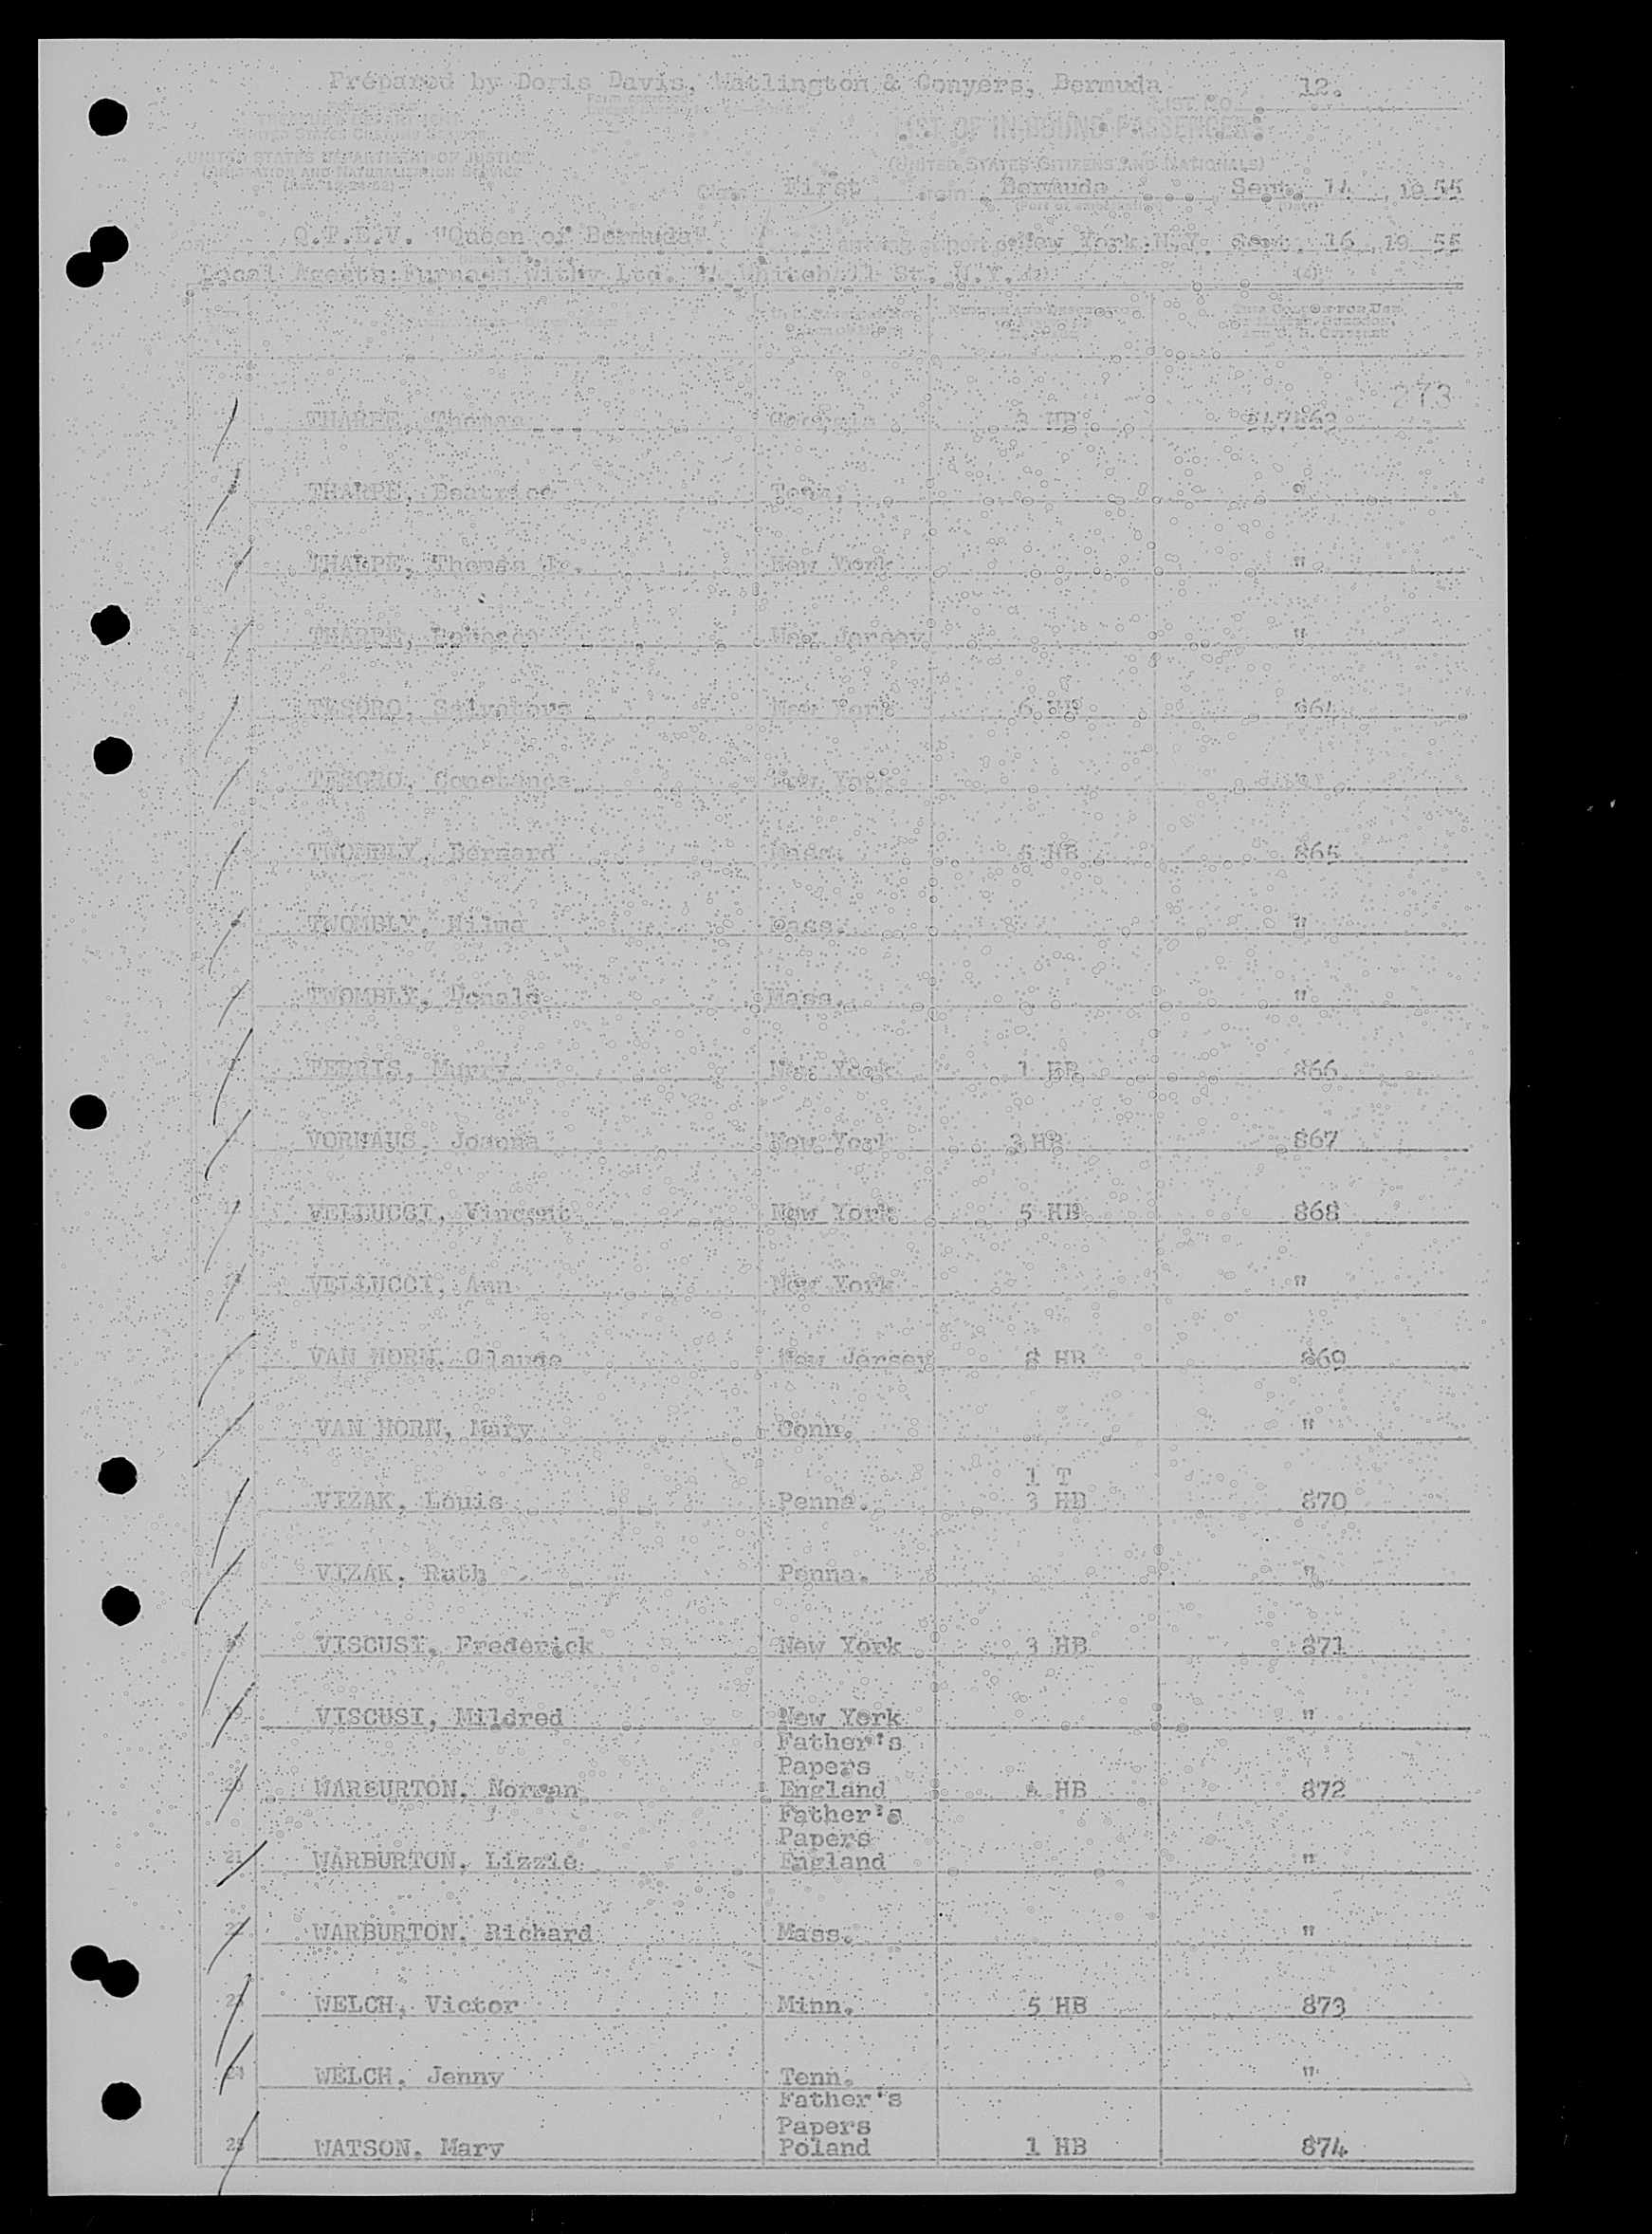 Prepared by Doris Davis, Watlington & Conyers, Bermuda 12.
LIST NO.
LIST OF IN-BOUND PASSENGERS
UNITED STATES DEPARTMENT OF JUSTICE (UNITED STATES CITIZENS AND NATIONALS)
IMMIGRATION AND NATURALIZATION SERVICE
Class First from Bermuda, Sept. 14, 1955
on Q.T.E.V. "Queen of Bermuda" arriving at port of New York N.Y. Sept. 16, 19 55
Local Agents: Furness Withy Ltd. St. N.Y.
273
THARPE, Thomas Georgia 3 HB 547863
THARPE, Beatrice Tenn. "
THARPE, Thomas Jr. New York "
THARPE, Rebecca New Jersey "
TESORO, Salvatore New York 6 HB 864
TESORO, Constance New York "
TWOMBLY, Bernard Mass. 5 HB 865
TWOMBLY, Wilma Mass. "
TWOMBLY, Donald Mass. "
New York 1 HB 866
VORHAUS, Joanna New York 3 HB 867
VELLUCCI, Vincent New York 5 HB 868
VELLUCCI, Ann New York "
VAN HORN, Claude New Jersey 8 HB 869
VAN HORN, Mary Conn. "
1 T
VIZAK, Louis Penna. 3 HB 870
VIZAK, Ruth Penna. "
VISCUSI, Frederick New York 3 HB 871
VISCUSI, Mildred New York "
Father's
Papers
20 WARBURTON, Norman England 4 HB 872
Father's
Papers
21 WARBURTON, Lizzie England "
22 WARBURTON, Richard Mass. "
23 WELCH, Victor Minn. 5 HB 873
24 WELCH, Jenny Tenn. "
Father's
Papers
25 WATSON, Mary Poland 1 HB 874